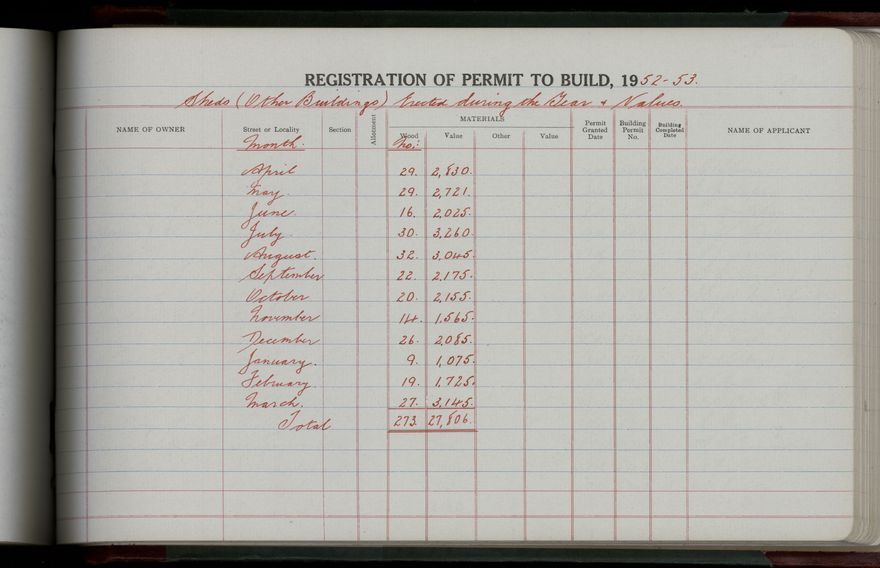 REGISTRATION OF PERMIT TO BUILD, 1952-53.
Sheds (Other Buildings) Erected during the Year & Values.
NAME OF OWNER Street or Locality Section Allotment MATERIALS Permit Granted Date Building Permit No. Building Completed Date NAME OF APPLICANT
Wood Value Other Value
Month. No:
April 29. 2,830.
May. 29. 2,721.
June. 16. 2,025.
July. 30. 3,260.
August. 32. 3,045.
September 22. 2,175.
October 20. 2,155.
November 14. 1,565.
December 26. 2,085.
January. 9. 1,075.
February. 19. 1,725.
March. 27. 3,145.
Total 273. 27,806.